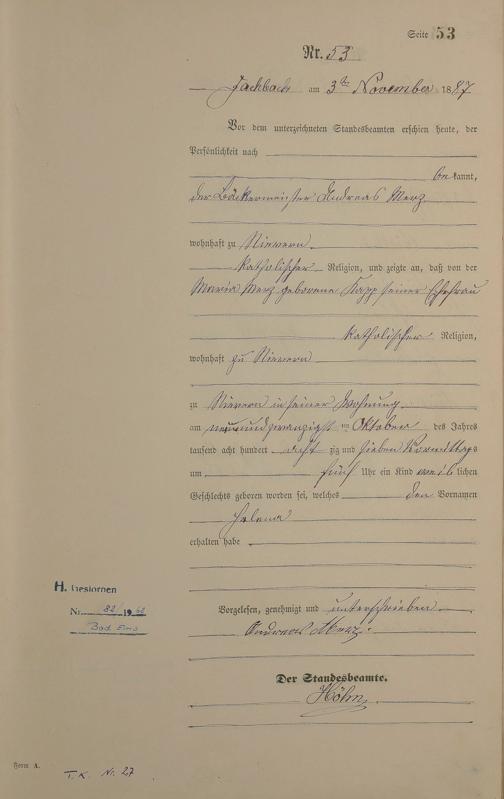 Seite 53
Nr. 53
Fachbach am 3ten November 1887
Vor dem unterzeichneten Standesbeamten erschien heute, der
Persönlichkeit nach
bekannt,
der Bäckermeister Andreas Merz
wohnhaft zu Nievern
katholischer Religion, und zeigte an, daß von der
Maria Merz geborene Kapp seiner Ehefrau
katholischer Religion,
wohnhaft zu Nievern
zu Nievern in seiner Wohnung
am neunundzwanzigst en Oktober des Jahres
tausend acht hundert acht zig und sieben Vormittags
um fünf Uhr ein Kind weiblichen
Geschlechts geboren worden sei, welches den Vornamen
Helena
erhalten habe
Vorgelesen, genehmigt und unterschrieben
Andreas Merz.
Der Standesbeamte.
Höhn
H. Gestorben
Nr. 82/19
Bad Ems
Form A.
T. K. Nr. 27